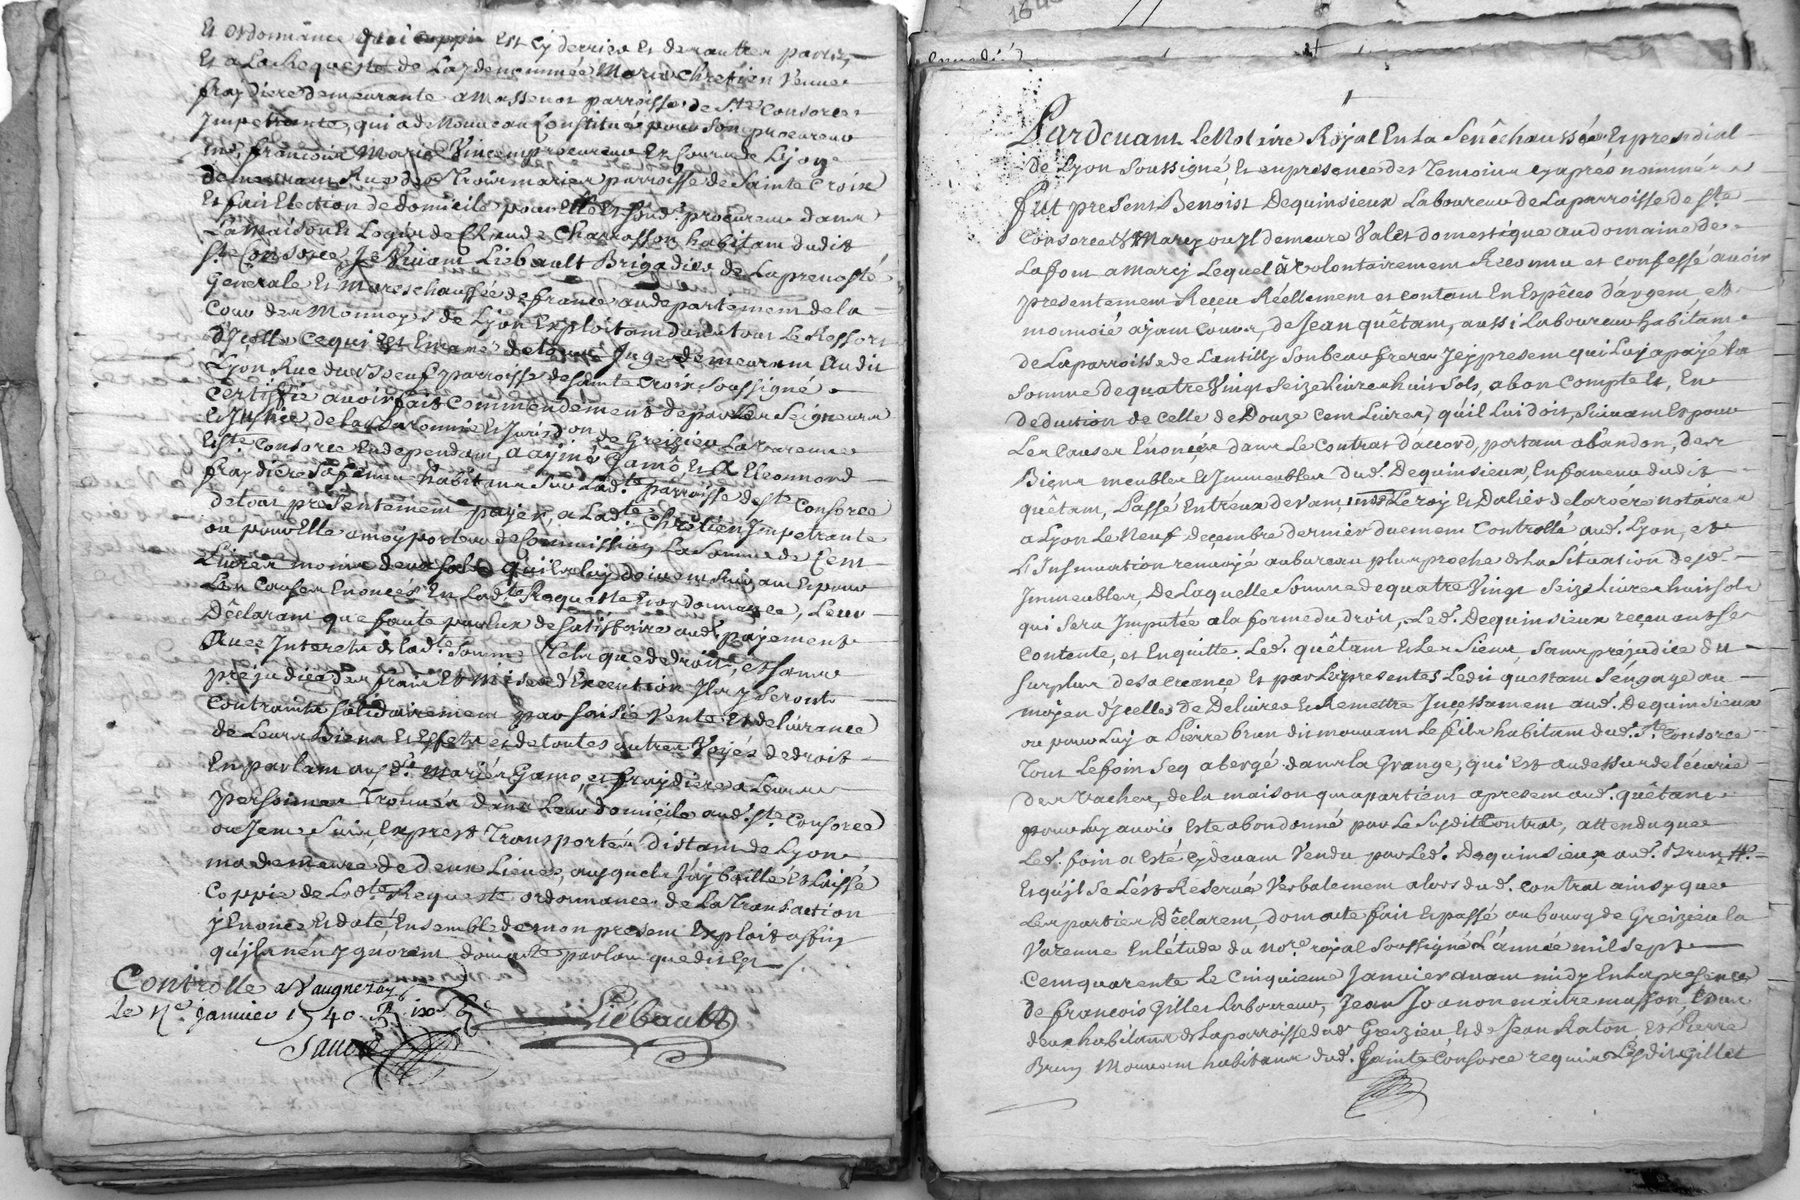 Et ordonnance qui coppie Est cy derrier Et de r autre partie,
Et a La Requeste de Lad. denommée Marie Chretien Veuve
fraydiere demeurante a Massenot parroisse de Ste Consorce
Impetrante, qui a de Nouveau Constitué pour son procureur
Me. francois Marie Vincent procureur Es Cours de Lyon
demeurant Rue des Trois maries parroisse de Sainte Croix
Et fait Election de domicile pour Elle Et sond. procureur dans
La Maison Et Logis de Claude Charrasson habitant dudit
Ste Consorce, Je Vivant Liébault Brigadier de La prevosté
Generale Et Mareschaussée de france au departement de la
Cour des Monnoyes de Lyon Exploitant dans tout Le Ressort
d'Icelle Ce qui Est Emané de toute Juge demeurant Audit
Lyon Rue du Boeuf parroisse de Sainte Croix Soussigné
Certiffie avoir fait Commendement de par Les Seigneurs
Et Justice, de La Baronnie Et Jurisdon de Greizieu La Varenne
Et Ste Consorce En dependant, a aymé Gamô Et a Eleomond
fraydiere Sa femme habitans Sur Lad.te parroisse de Ste Consorce
de tout presentement payer, a Lad.te Chrêtien Impetrante
ou pour Elle a moy porteur de Commission La Somme de Cent
Livres moins deux sols qu'ils luy doivent Suivant Et pour
Les Causes Enoncés En Lad.te Requeste Et ordonnance, Leur
Dêclarant que faute par Eux de Satisfaire aud. payement
Avec Interests de lad.te Somme Tels que de droit, et sans
préjudice des frais Et Mises d'Execution Ils y Seront
Contraints Solidairement par Saisie Vente Et delivrance
de Leurs Biens Et Effets et de toutes autres Voyes de droit
En parlant ausd.ts Mariés Gamo, et fraydiere a Leurs
personnes Trouvés dans Leur domicile aud. Ste Consorce
ou Je me Suis Exprest Transporté distant de Lyon
ma demeure de deux Lieues, auxquels J'ay baillé Et Laissé
Coppie de Lad.te Requeste ordonnance de La Transaction
y Enoncé Et daté, Ensemble de mon present Exploit affin
qu'ils n'en Ignorent dont acte parlant que dit Est
Controlle a Vaugneray
le 11e. janvier 1740. R. ix s.
Sauvé
Liébault
Pardevant le Notaire Royal En La Senêchaussée Et presidial
de Lyon Soussigné, Et en presence des Temoins cy aprés nommés
fut present Benoist Dequinsieux Laboureur de La parroisse de Ste
Consorce Et Marcy ou Il demeure Valet domestique au domaine de
Lafont a Marcy Lequel a Volontairement Reconnu et confessé avoir
presentement Reçeu Réellement et contant En Espêces d'argent, et
monnoié ajant Cours, de Jean quêtant, aussi Laboureur habitant
de La parroisse de Lentilly Son beau frere Icy present qui Luj a payé la
Somme de quatre Vingt Seize Livres huit Sols, a bon Compte Et, En
deduction de Celle de Douze Cent Livres, qu'il Lui doit, Suivant Et pour
Les Causes Enoncées dans Le Contrat d'accord, portant abandon, des
Biens meubles Et Immeubles dud. Dequinsieux, En faveur dudit
quêtant, Passé Entr'eux devant, mes Leroy Et Daliés de La roêre notaires
a Lyon Le Neuf Deçembre dernier duement Controllé aud. Lyon, et
L'Insinuation renvoyé au bureau plus proche de La Situation desd.
Immeubles, De Laquelle Somme de quatre Vingt Seize Livres huit Sols
qui Sera Imputée a la forme du droit, Led. Dequinsieux reçevant Se
Contente, et En quitte Led. quêtant Et les Siens Sans préjudice du
Surplus de Sa Creançe Et par Les presentes Ledit questant S'engage au
moyen d'Jcelles de Delivrer Et Remettre Incessament aud. Dequinsieux
ou pour Luj a Pierre brun dit mouvant Le fils habitant dud. Ste Consorce
Tout Le foin Seq abergé dans la Grange, qui Est au dessus de l'écurie
des Vaches, de la maison qui apartient a present aud. quêtant
pour Luj avoir Esté abondonné par Le Susdit Contrat, attendu que
Led. foin a Esté Cy devant Vendu par Led. Dequinsieux aud. Brun
Et qu'il Se L'est Reservé Verbalement a lors dud. contrat ainsy que
Les parties Dêclarent, dont acte fait Et passé au bourg de Greizieu la
Varenne En l'étude du Nore. royal Soussigné L'année mil Sept
Cent quarente Le Cinquieme Janvier avant midy En La presence
de francois Gillet Laboureur, Jean Joanon maitre masson, tous
deux habitans de La parroisse dud. Greizieu, Et de Jean Raton, Et Pierre
Brun Mouvant habitans dud. Sainte Consorce requis Lesdits Gillet